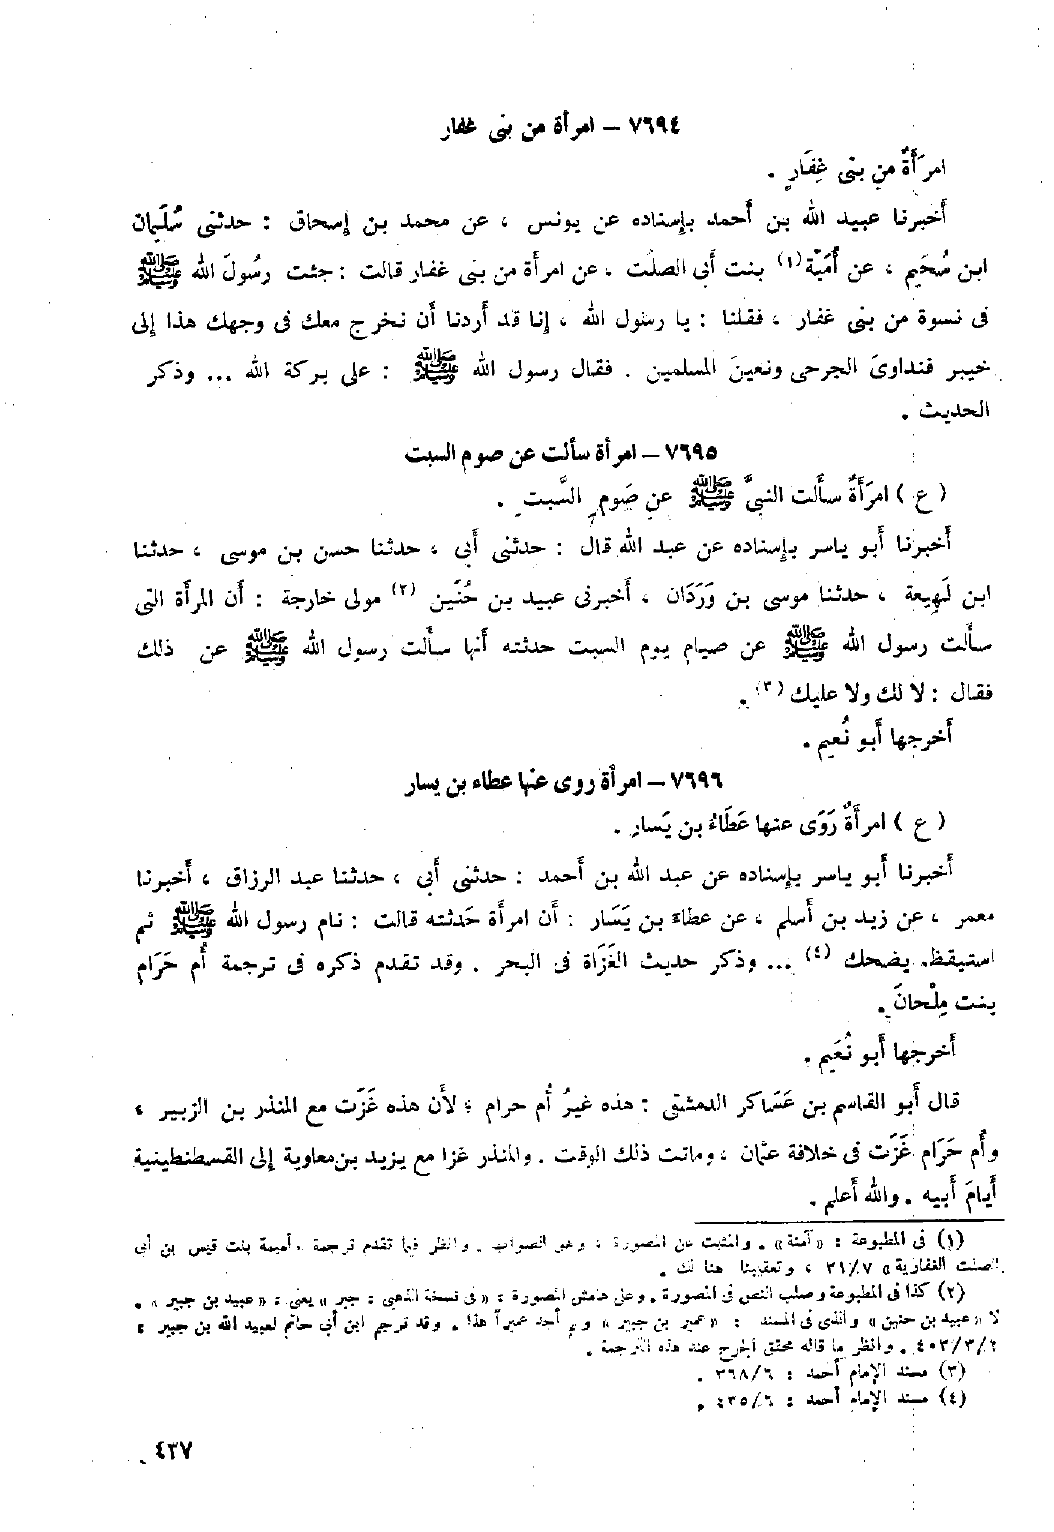 ٧٦٩٤ – امرأة من بنى غفار
امرَأَةٌ من بنى غِفَارٍ .
أَخبرنا عبيد الله بن أَحمد بإِسناده عن يونس ، عن محمد بن إِسحاق : حدثنى سُلَيمان
ابن سُحَيم ، عن أُمَيَّة (١) بنت أَبى الصلت ، عن امرأَة من بنى غفار قالت : جئت رسُولَ الله ﷺ
فى نسوة من بنى غفار ، فقلنا : يا رسول الله ، إِنا قد أَردنا أَن نخرج معك فى وجهك هذا إِلى
خيبر فنداوىَ الجرحى ونعينَ المسلمين . فقال رسول الله ﷺ : على بركة الله ... وذكر
الحديث .
٧٦٩٥ – امرأة سألت عن صوم السبت
( ع ) امرَأَةٌ سأَلت النبىَّ ﷺ عن صَومِ السَّبت .
أَخبرنا أَبو ياسر بإِسناده عن عبد الله قال : حدثنى أَبى ، حدثنا حسن بن موسى ، حدثنا
ابن لَهِيعة ، حدثنا موسى بن وَرْدَان ، أَخبرنى عبيد بن حُنَين (٢) مولى خارجة : أَن المرأَة التى
سأَلت رسول الله ﷺ عن صيام يوم السبت حدثته أَنها سأَلت رسول الله ﷺ عن ذلك
فقال : لا لك ولا عليك (٣) .
أَخرجها أَبو نُعيم .
٧٦٩٦ – امرأة روى عنها عطاء بن يسار
( ع ) امرأَةٌ رَوَى عنها عَطَاءُ بن يَسَار .
أَخبرنا أَبو ياسر بإِسناده عن عبد الله بن أَحمد : حدثنى أَبى ، حدثنا عبد الرزاق ، أَخبرنا
معمر ، عن زيد بن أَسلم ، عن عطاءِ بن يَسَار : أَن امرأَة حَدثته قالت : نام رسول الله ﷺ ثم
استيقظ يضحك (٤) ... وذكر حديث الغَزَاة فى البحر . وقد تقدم ذكره فى ترجمة أُم حَرَام
بنت مِلْحانَ .
أَخرجها أَبو نُعَيم .
قال أَبو القاسم بن عَسَاكر الدمشقى : هذه غيرُ أُم حرام ؛ لأَن هذه غَزَت مع المنذر بن الزبير ،
وأُم حَرَام غَزَت فى خلافة عثمان ، وماتت ذلك الوقت . والمنذر غزا مع يزيد بن معاوية إِلى القسطنطينية
أَيامَ أَبيه . والله أَعلم .
(١) فى المطبوعة : «آمنة» . والمثبت عن المصورة ، وهو الصواب . وانظر فيما تقدم ترجمة «أميمة بنت قيس بن أبى
الصلت الغفارية» ٣١/٧ ، وتعقيبنا هنا لك .
(٢) كذا فى المطبوعة وصلب النص فى المصورة . وعلى هامش المصورة : «فى نسخة الذهبى : جبر» يعنى : «عبيد بن جبير» .
لا «عبيد بن حنين» والذى فى المسند : «عمير بن جبير» ولم أجد عميراً هذا . وقد ترجم ابن أبى حاتم لعبيد الله بن جبير :
٤٠٣/٢/٢ . وانظر ما قاله محقق الجرح عند هذه الترجمة .
(٣) مسند الإمام أحمد : ٣٦٨/٦ .
(٤) مسند الإمام أحمد : ٤٣٥/٦ .
٤٣٧